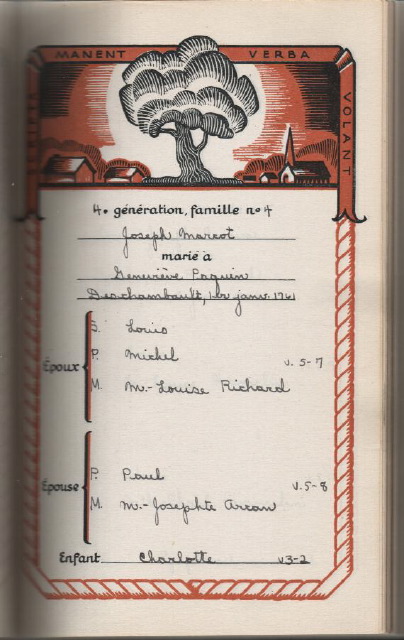 MANENT VERBA
VOLANT
4e génération, famille no 4
Joseph Marcot
marié à
Geneviève Paquin
Deschambault, 1er janv. 1761
S. Louis
P. Michel
Époux
v. 5-7
M. M.-Louise Richard
P. Paul
Épouse
v. 5-8
M. M.-Josephte Arcan
Enfant Charlotte v3-2